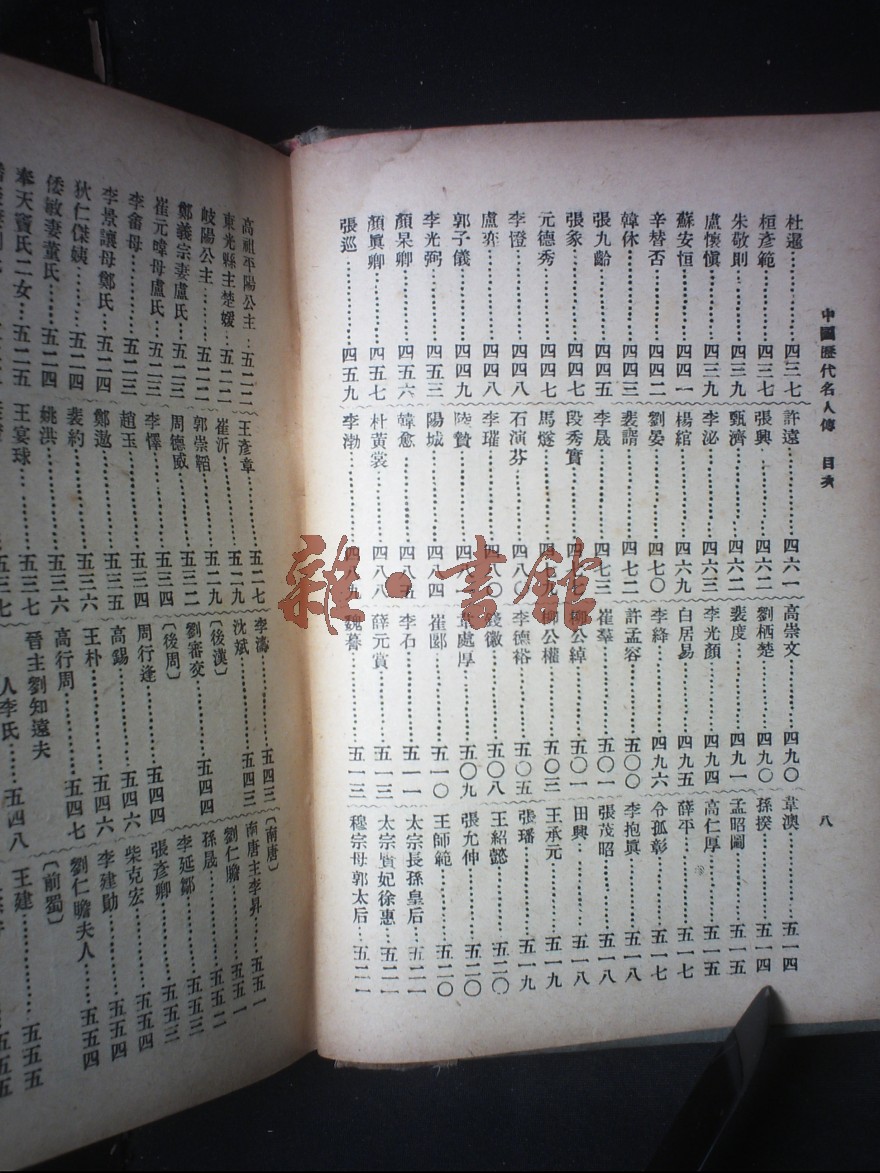 中國歷代名人傳　目次
八
杜暹……四三七
桓彥範……四三七
朱敬則……四三九
盧懷愼……四三九
蘇安恒……四四一
辛替否……四四四
韓休……四四四
張九齡……四四五
張彖……四四七
元德秀……四四七
李憕……四四八
盧奕……四四八
郭子儀……四四九
李光弼……四五三
顏杲卿……四五六
顏眞卿……四五七
張巡……四五九
許遠……四六一
張興……四六二
甄濟……四六二
李泌……四六三
楊綰……四六九
劉晏……四七〇
裴諝……四七二
李晟……四七三
段秀實
馬燧
石演芬……四八〇
李瓘……四八〇
陸贄
陽城……四八四
韓愈……四八五
杜黃裳……四八八
李渤……四八九
高崇文……四九〇
劉栖楚……四九〇
裴度……四九一
李光顏……四九四
白居易……四九五
李絳……四九六
許孟容……五〇〇
崔羣……五〇一
柳公綽……五〇一
柳公權……五〇三
李德裕……五〇五
錢徽……五〇八
韋處厚……五〇九
崔郾……五一〇
李石……五一一
薛元賞……五一三
魏謩……五一三
韋澳……五一四
孫揆……五一四
孟昭圖……五一五
高仁厚……五一五
薛平……五一七
令孤彰……五一七
李抱眞……五一八
張茂昭……五一八
田興……五一八
王承元……五一九
張璠……五一九
王紹懿……五二〇
張允伸……五二〇
王師範……五二〇
太宗長孫皇后……五二一
太宗賢妃徐惠……五二一
穆宗母郭太后……五二一
高祖平陽公主……五二二
東光縣主楚媛……五二二
岐陽公主……五二二
鄭義宗妻盧氏……五二三
崔元暐母盧氏……五二三
李畬母……五二三
李景讓母鄭氏……五二四
狄仁傑姨……五二四
倭敏妻董氏……五二四
奉天竇氏二女……五二五
王彥章……五二七
崔沂……五二九
郭崇韜……五二九
周德威……五三二
李懌……五三四
趙玉……五三四
鄭遨……五三五
裴約……五三六
姚洪……五三六
王宴球……五三七
李濤……五四三
沈斌……五四三
〔後漢〕
劉審交……五四四
〔後周〕
周行逢……五四四
高錫……五四六
王朴……五四六
高行周……五四七
晉主劉知遠夫
人李氏……五四八
〔南唐〕
南唐主李昇……五五一
劉仁贍……五五一
孫晟……五五二
李延鄒……五五三
張彥卿……五五三
柴克宏……五五四
李建勛……五五四
劉仁瞻夫人……五五四
〔前蜀〕
王建……五五五
雜·書館